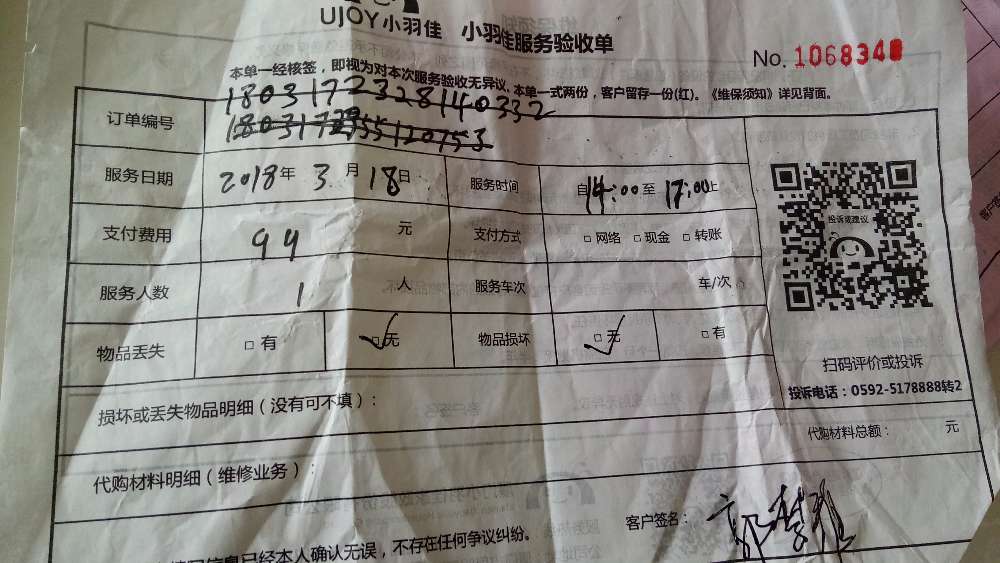 UJOY小羽佳 小羽佳服务验收单
No. 1068348
本单一经核签，即视为对本次服务验收无异议。本单一式两份，客户留存一份(红)。《维保须知》详见背面。
订单编号 180317232814033​2
服务日期 2018年 3月 18日 服务时间 自14:00至17:00止
支付费用 94 元 支付方式 □网络 □现金 □转账
服务人数 1 人 服务车次 车/次
物品丢失 □有 ☑无 物品损坏 ☑无 □有
投诉或建议
扫码评价或投诉
投诉电话：0592-5178888转2
损坏或丢失物品明细（没有可不填）：
代购材料总额： 元
代购材料明细（维修业务）：
客户签名：
信息已经本人确认无误，不存在任何争议纠纷。